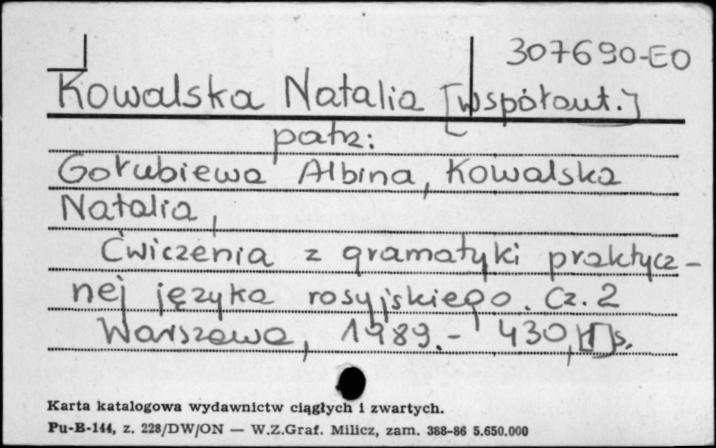 307690-EO
Kowalska Natalia [współaut.]
patrz:
Gołubiewa Albina, Kowalska
Natalia,
Ćwiczenia z gramatyki praktycz-
nej języka rosyjskiego. Cz. 2
Warszawa, 1989.- 430,[1]s.
Karta katalogowa wydawnictw ciągłych i zwartych.
Pu-B-144, z. 228/DW/ON — W.Z.Graf. Milicz, zam. 388-86 5.650.000